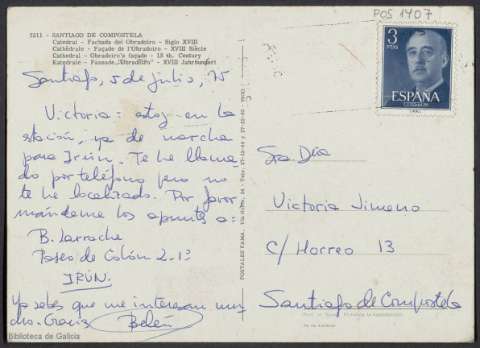 POS 1407
5211 - SANTIAGO DE COMPOSTELA
Catedral - Fachada del Obradoiro - Siglo XVIII
Cathédrale - Façade de l'Obradoiro - XVIII Siècle
Cathedral - Obradoiro's façade - 18 th. Century
Katedrale - Fassade „Obradoiro" - XVIII Jahrhundert
Santiago, 5 de julio, 75
Victoria: estoy en la
estación, ya de marcha
para Irún. Te he llama-
do por teléfono pero no
te he localizado. Por favor
mándame los apuntes a:
B. Larrache
Paseo de Colón 2-1º
IRÚN.
Ya sabes que me interesan mu-
cho. Gracias Belén
POSTALES FAMA
3
PTAS
ESPAÑA
CORREOS
Sta. Dña
Victoria Jimeno
C/ Horreo 13
Santiago de Compostela
Biblioteca de Galicia